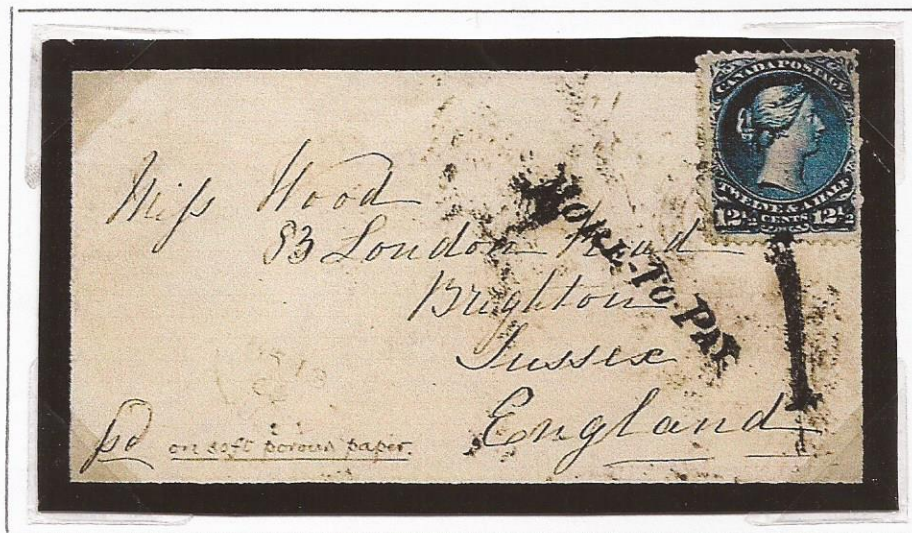 CANADA POSTAGE
TWELVE & A HALF
12½ CENTS 12½
MORE-TO-PAY
1
Miss Wood
83 London Road
Brighton
Sussex
England
pd
on soft porous paper.